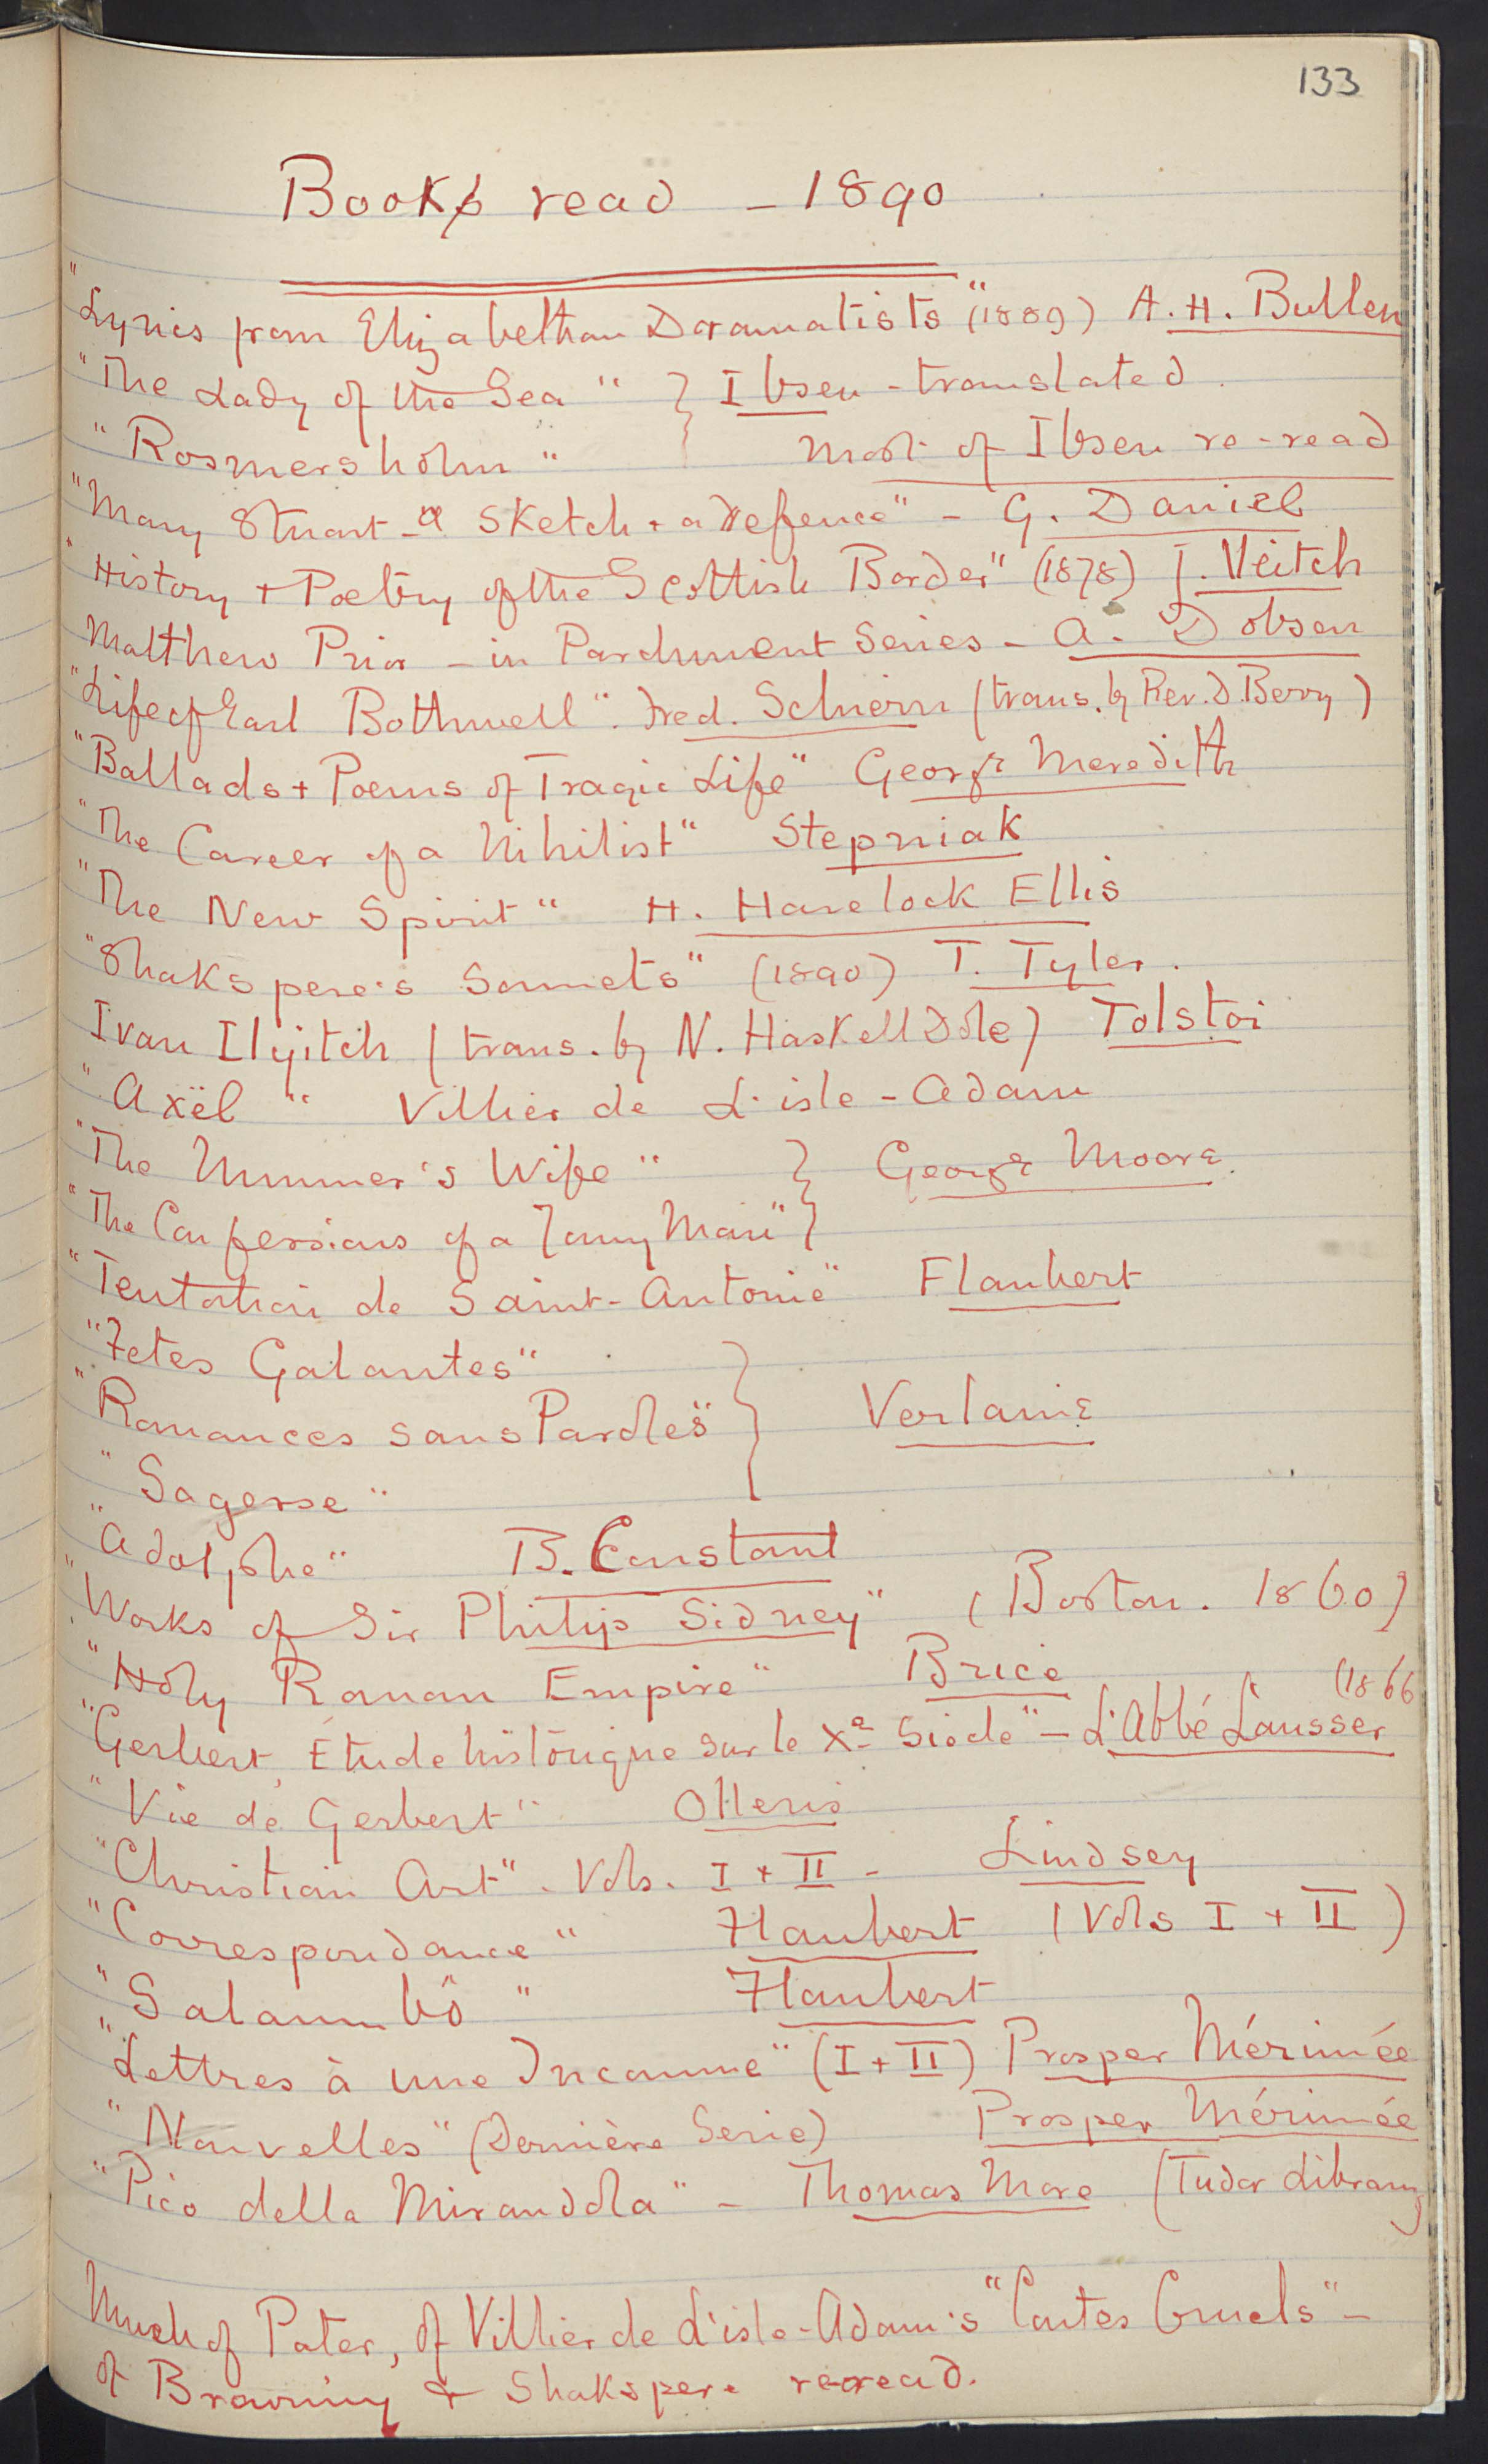 133
Books read - 1890
"Lyrics from Elizabethan Dramatists" (1889) A. H. Bullen
"The Lady of the Sea" } Ibsen - translated.
"Rosmersholm" Most of Ibsen re-read
"Mary Stuart - a Sketch + a Defence" - G. Daniel
"History + Poetry of the Scottish Border" (1878) J. Veitch
Matthew Prior - in Parchment Series - A. Dobson
"Life of Earl Bothwell". Fred. Schiern (trans. by Rev. D. Berry)
"Ballads + Poems of Tragic Life" George Meredith
"The Career of a Nihilist" Stepniak
"The New Spirit" H. Havelock Ellis
"Shakspere's Sonnets" (1890) T. Tyler.
Ivan Ilyitch (trans. by N. Haskell Dole) Tolstoi
"Axël" Villier de L'isle-Adam
"The Mummer's Wife" } George Moore.
"The Confessions of a Young Man" }
"Tentation de Saint-Antoine" Flaubert
"Fetes Galantes"
"Romances sans Paroles" } Verlaine
"Sagesse"
"Adolphe" B. Constant
"Works of Sir Philip Sidney" (Boston. 1860)
"Holy Roman Empire" Brice
(1866
"Gerbert, Étude historique sur le Xe Siècle" - L'Abbé Lausser
"Vie de Gerbert" Olleris
"Christian Art". Vols. I + II - Lindsey
"Correspondance" Flaubert (Vols I + II)
"Salammbô" Flaubert
"Lettres à une Inconnue" (I + II) Prosper Mérimée
"Nouvelles" (Dernière Serie) Prosper Mérimée
"Pico della Mirandola" - Thomas More (Tudor Library)
Much of Pater, of Villier de L'isle-Adam's "Contes Cruels" -
of Browning & Shakspere reread.